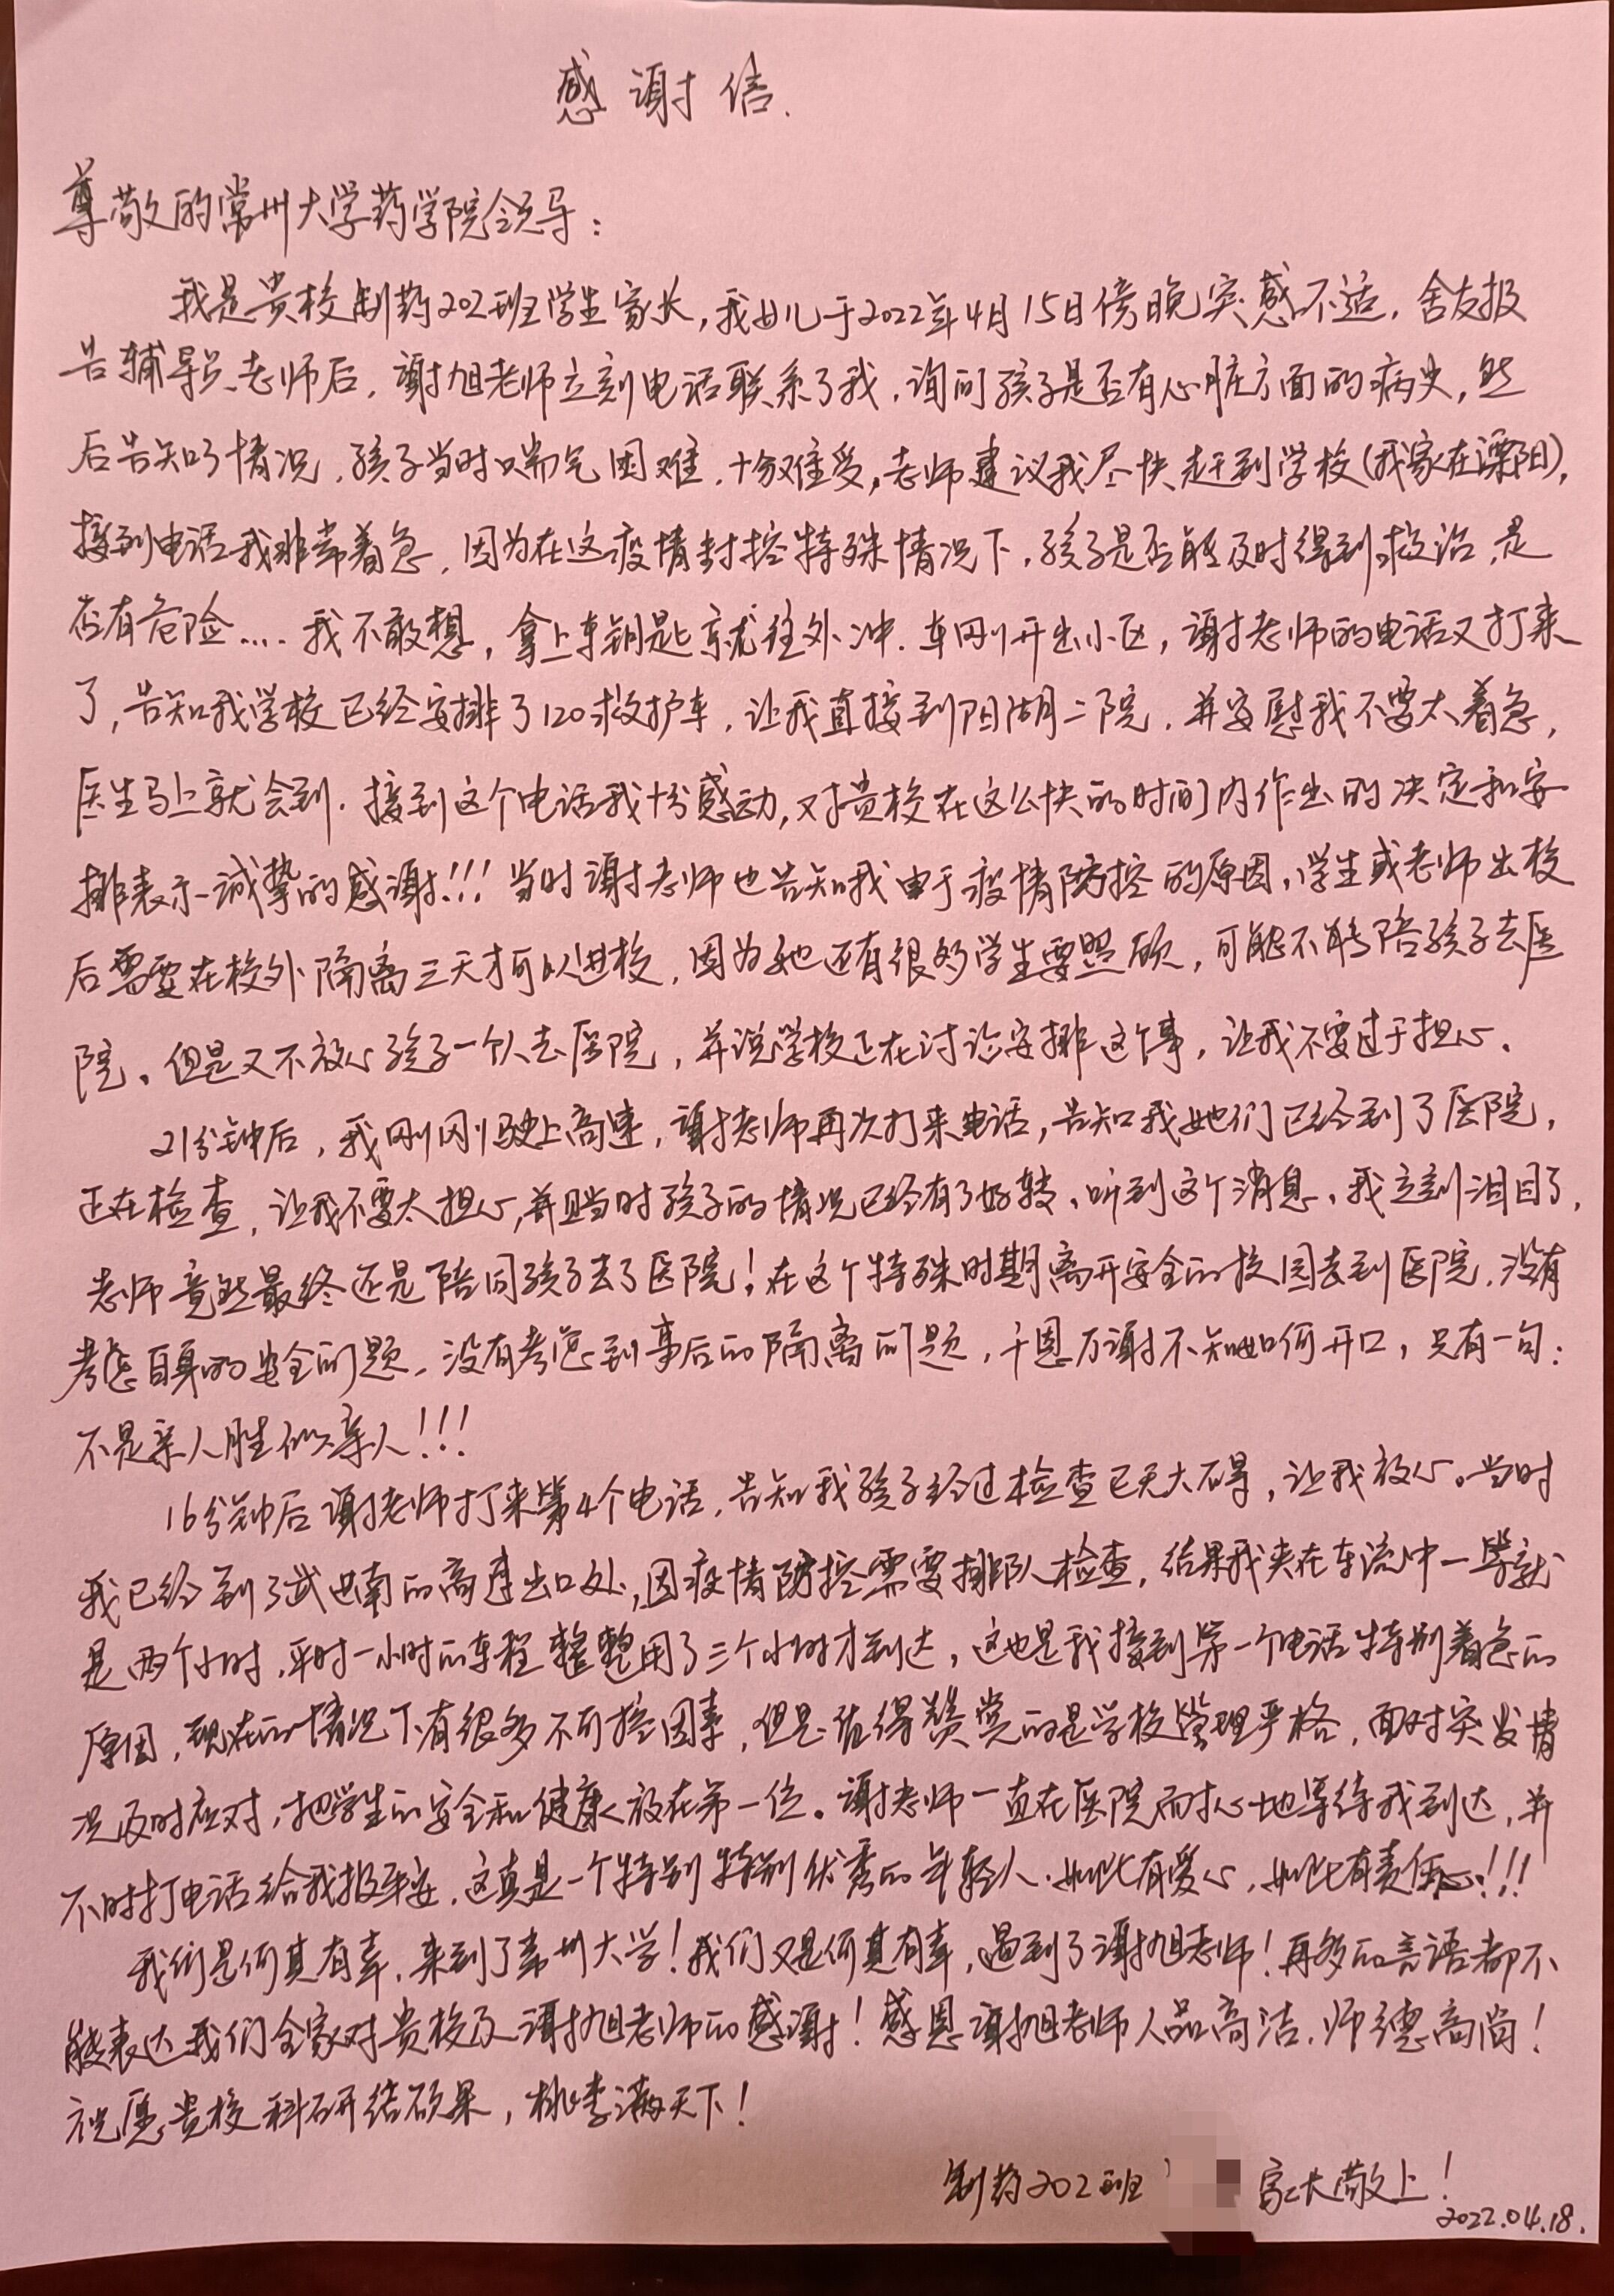 感谢信.
尊敬的常州大学药学院领导：
我是贵校制药202班学生家长，我女儿于2022年4月15日傍晚突感不适，舍友报
告辅导员老师后，谢旭老师立刻电话联系了我，询问孩子是否有心脏方面的病史，然
后告知了情况，孩子当时喘气困难，十分难受，老师建议我尽快赶到学校(我家在溧阳)，
接到电话我非常着急，因为在这疫情封控特殊情况下，孩子是否能及时得到救治，是
否有危险....我不敢想，拿上车钥匙就往外冲.车刚开出小区，谢老师的电话又打来
了，告知我学校已经安排了120救护车，让我直接到阳湖二院，并安慰我不要太着急，
医生马上就会到.接到这个电话我十分感动，对贵校在这么快的时间内作出的决定和安
排表示诚挚的感谢!!!当时谢老师也告知我由于疫情防控的原因，学生或老师出校
后需要在校外隔离三天才可以进校，因为她还有很多学生要照顾，可能不能陪孩子去医
院。但是又不放心孩子一个人去医院，并说学校正在讨论安排这个事，让我不要过于担心.
21分钟后，我刚刚驶上高速，谢老师再次打来电话，告知我她们已经到了医院，
正在检查，让我不要太担心，并且当时孩子的情况已经有了好转、听到这个消息、我立刻泪目了，
老师竟然最终还是陪同孩子去了医院!在这个特殊时期离开安全的校园去到医院，没有
考虑自身的安全问题、没有考虑到事后的隔离问题，千恩万谢不知如何开口，只有一句:
不是亲人胜似亲人!!!
16分钟后谢老师打来第4个电话，告知我孩子经过检查已无大碍，让我放心。当时
我已经到了武进南的高速出口处，因疫情防控需要排队检查，结果我夹在车流中一等就
是两个小时，平时一小时的车程整整用了三个小时才到达，这也是我接到第一个电话特别着急的
原因，现在的情况下有很多不可控因素，但是值得赞赏的是学校管理严格，面对突发情
况及时应对，把学生的安全和健康放在第一位。谢老师一直在医院耐心地等待我到达，并
不时打电话给我报平安，这真是一个特别特别优秀的年轻人.如此有爱心，如此有责任心!!!
我们是何其有幸，来到了常州大学!我们又是何其有幸，遇到了谢旭老师!再多的言语都不
能表达我们全家对贵校及谢旭老师的感谢!感恩谢旭老师人品高洁，师德高尚!
祝愿贵校科研结硕果，桃李满天下!
制药202班 家长敬上!
2022.04.18.